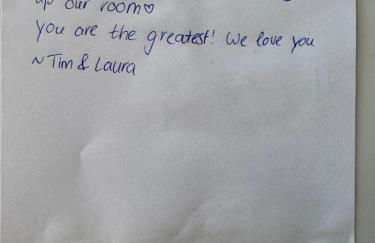 up our room♡
You are the greatest! We love you
~ Tim & Laura